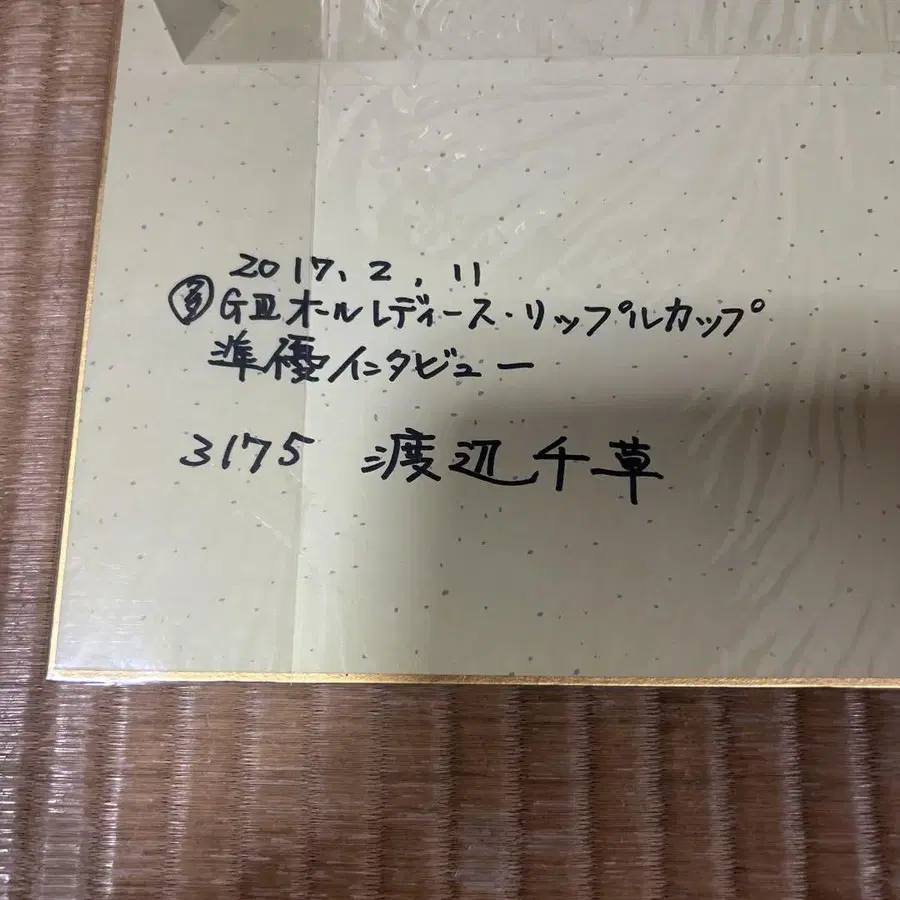 2017.2.11
㊂GⅢオールレディース・リップルカップ
準優インタビュー
3175 渡辺千草